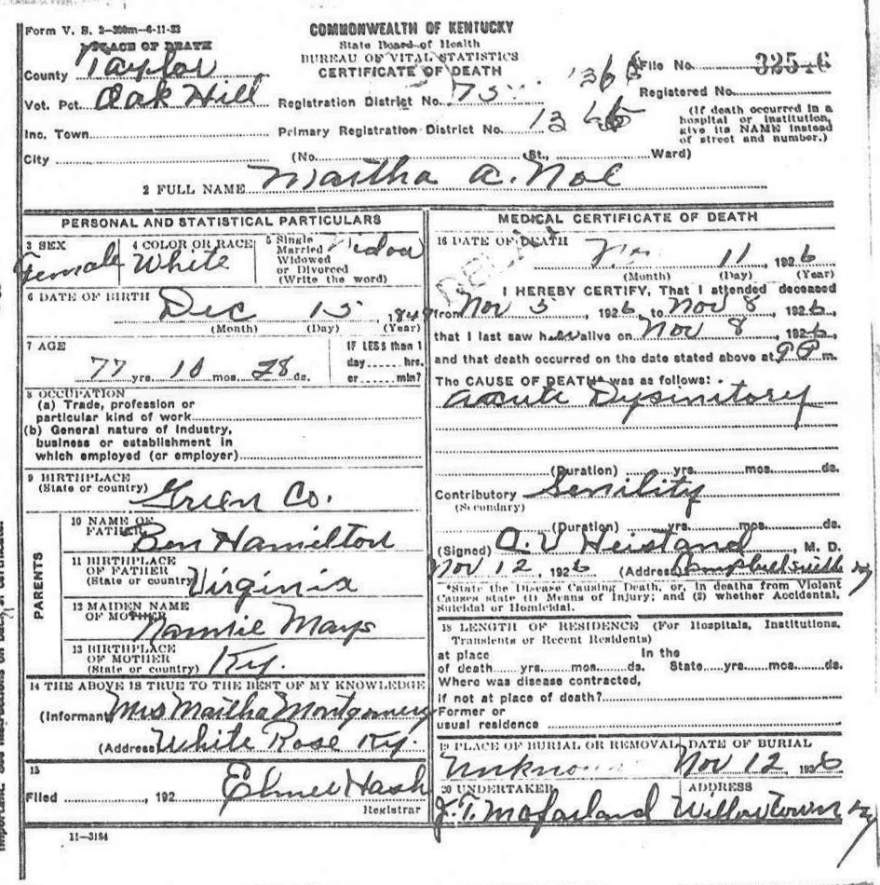 Form V. S. 2—300m—6-11-23
COMMONWEALTH OF KENTUCKY
State Board of Health
BUREAU OF VITAL STATISTICS
CERTIFICATE OF DEATH
1 PLACE OF DEATH
County Taylor
Vot. Pct. Oak Hill
Inc. Town
City
Registration District No. 75
Primary Registration District No.
(No. St., Ward)
File No.
Registered No.
(If death occurred in a
hospital or institution,
give its NAME instead
of street and number.)
2 FULL NAME Martha A. Noe
PERSONAL AND STATISTICAL PARTICULARS
3 SEX
Female
4 COLOR OR RACE
White
5 Single
Married
Widowed
or Divorced
(Write the word)
6 DATE OF BIRTH
Dec 15
(Month) (Day) (Year)
7 AGE
77 yrs. 10 mos. 28 ds.
IF LESS than 1
day ...... hrs.
or ...... min?
8 OCCUPATION
(a) Trade, profession or
particular kind of work
(b) General nature of industry,
business or establishment in
which employed (or employer)
9 BIRTHPLACE
(State or country)
Green Co.
PARENTS
10 NAME OF
FATHER
Ben Hamilton
11 BIRTHPLACE
OF FATHER
(State or country)
Virginia
12 MAIDEN NAME
OF MOTHER
Nannie Mays
13 BIRTHPLACE
OF MOTHER
(State or country)
Ky.
14 THE ABOVE IS TRUE TO THE BEST OF MY KNOWLEDGE
(Informant) Mrs Martha Montgomery
(Address) White Rose Ky.
15
Filed , 192
Elmer Hash
Registrar
11—3184
MEDICAL CERTIFICATE OF DEATH
16 DATE OF DEATH
11, 1926
(Month) (Day) (Year)
DELAY
I HEREBY CERTIFY, That I attended deceased
from Nov 5, 1926, to Nov 8, 1926,
that I last saw her alive on Nov 8, 1926,
and that death occurred on the date stated above at 9 P m.
The CAUSE OF DEATH* was as follows:
Acute Dysinitory
(Duration) yrs. mos. ds.
Contributory Senility
(Secondary)
(Duration) yrs. mos. ds.
(Signed) O. V Heistand, M. D.
Nov 12, 1926 (Address) Campbellsville Ky
*State the Disease Causing Death, or, in deaths from Violent
Causes state (1) Means of Injury; and (2) whether Accidental,
Suicidal or Homicidal.
18 LENGTH OF RESIDENCE (For Hospitals, Institutions,
Transients or Recent Residents)
at place In the
of death yrs. mos. ds. State yrs. mos. ds.
Where was disease contracted,
if not at place of death?
Former or
usual residence
19 PLACE OF BURIAL OR REMOVAL
Unknown
DATE OF BURIAL
Nov 12 1926
20 UNDERTAKER
J. T. McFarland
ADDRESS
Willowtown Ky